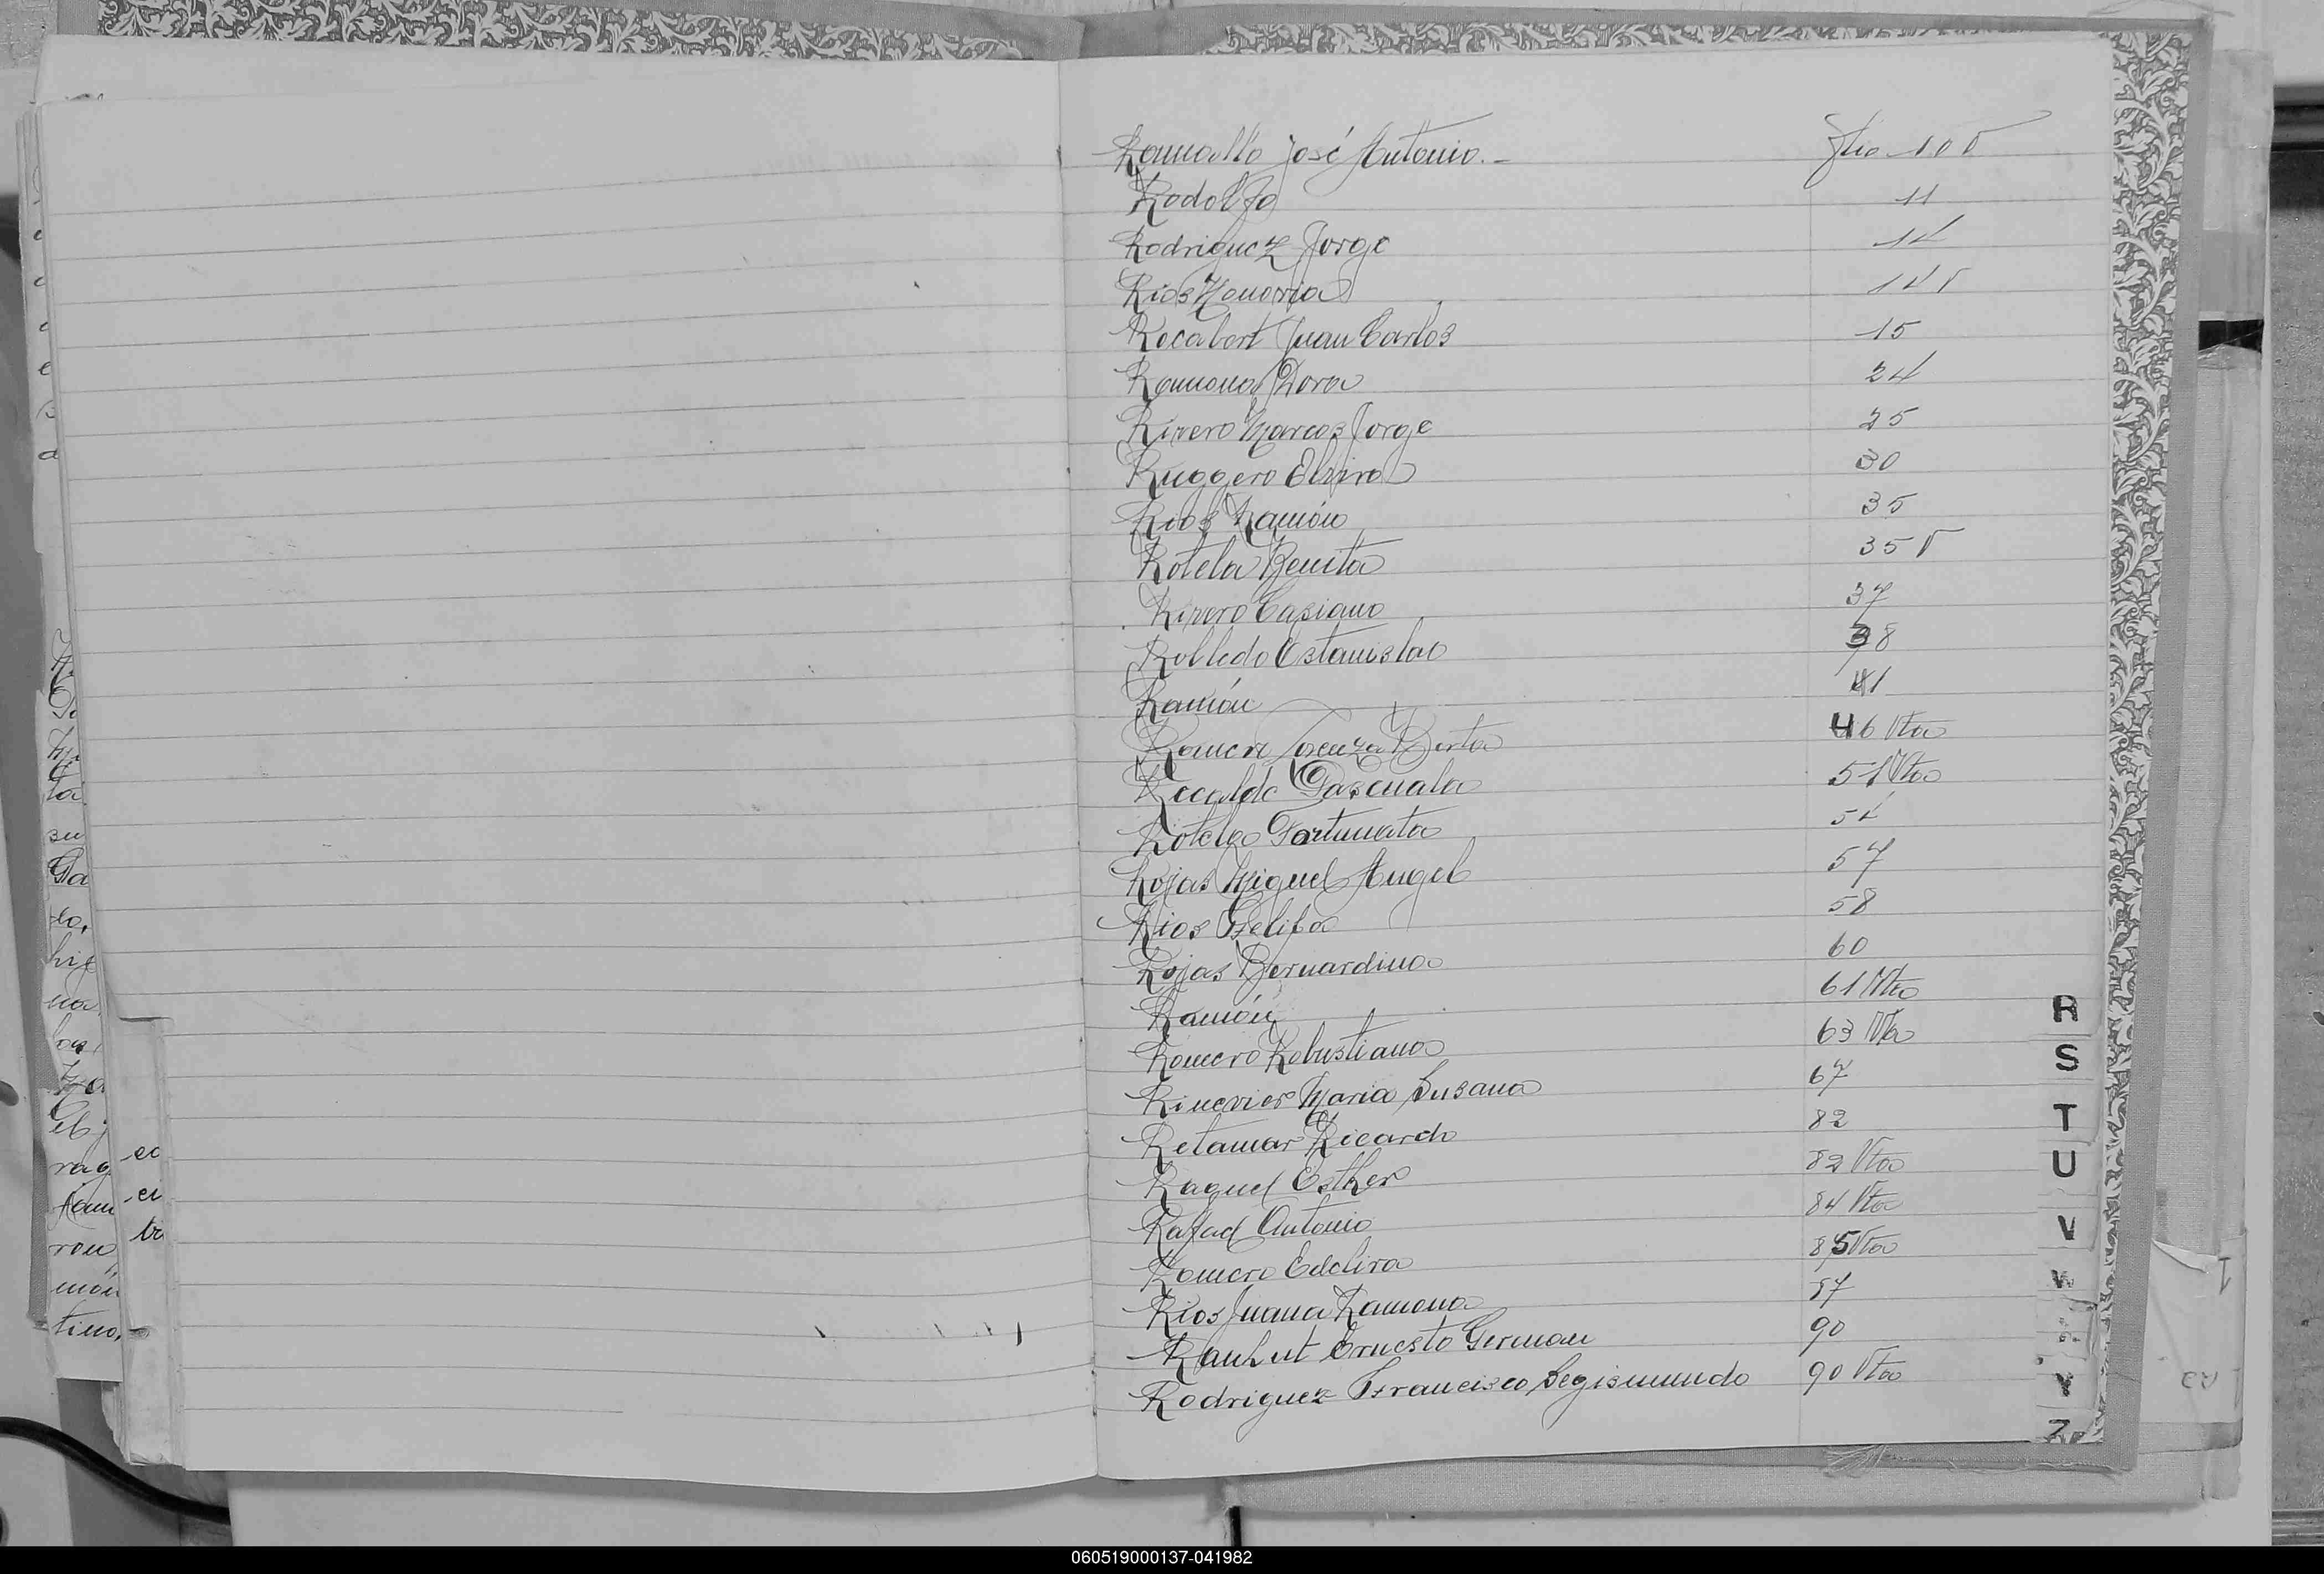 Ramallo José Antonio.- flio 10 V
Rodolfo 11
Rodriguez Jorge 14
Rios Honoria 14 V
Rocabert Juan Carlos 15
Ramona Dora 24
Rivero Marcos Jorge 25
Ruggero Elvira 30
Rios Ramón 35
Rotela Benita 35 V
Rivero Casiano 37
Robledo Estanislao 38
Ramón 41
Romero Lorenza Berta 46 Vta
Recalde Pascuala 51 Vta
Rotela Fortunata 54
Rojas Miguel Angel 57
Rios Felisa 58
Rojas Bernardina 60
Ramón 61 Vta
Romero Robustiana 63 Vta
Maria Susana 67
Retamar Ricardo 82
Raquel Esther 82 Vta
Rafael Antonio 84 Vta
Romero Edelira 85 Vta
Rios Juana Ramona 87
Rauhut Ernesto German 90
Rodriguez Francisco Segismundo 90 Vta
R
S
T
U
V
W
Y
Z
060519000137-041982